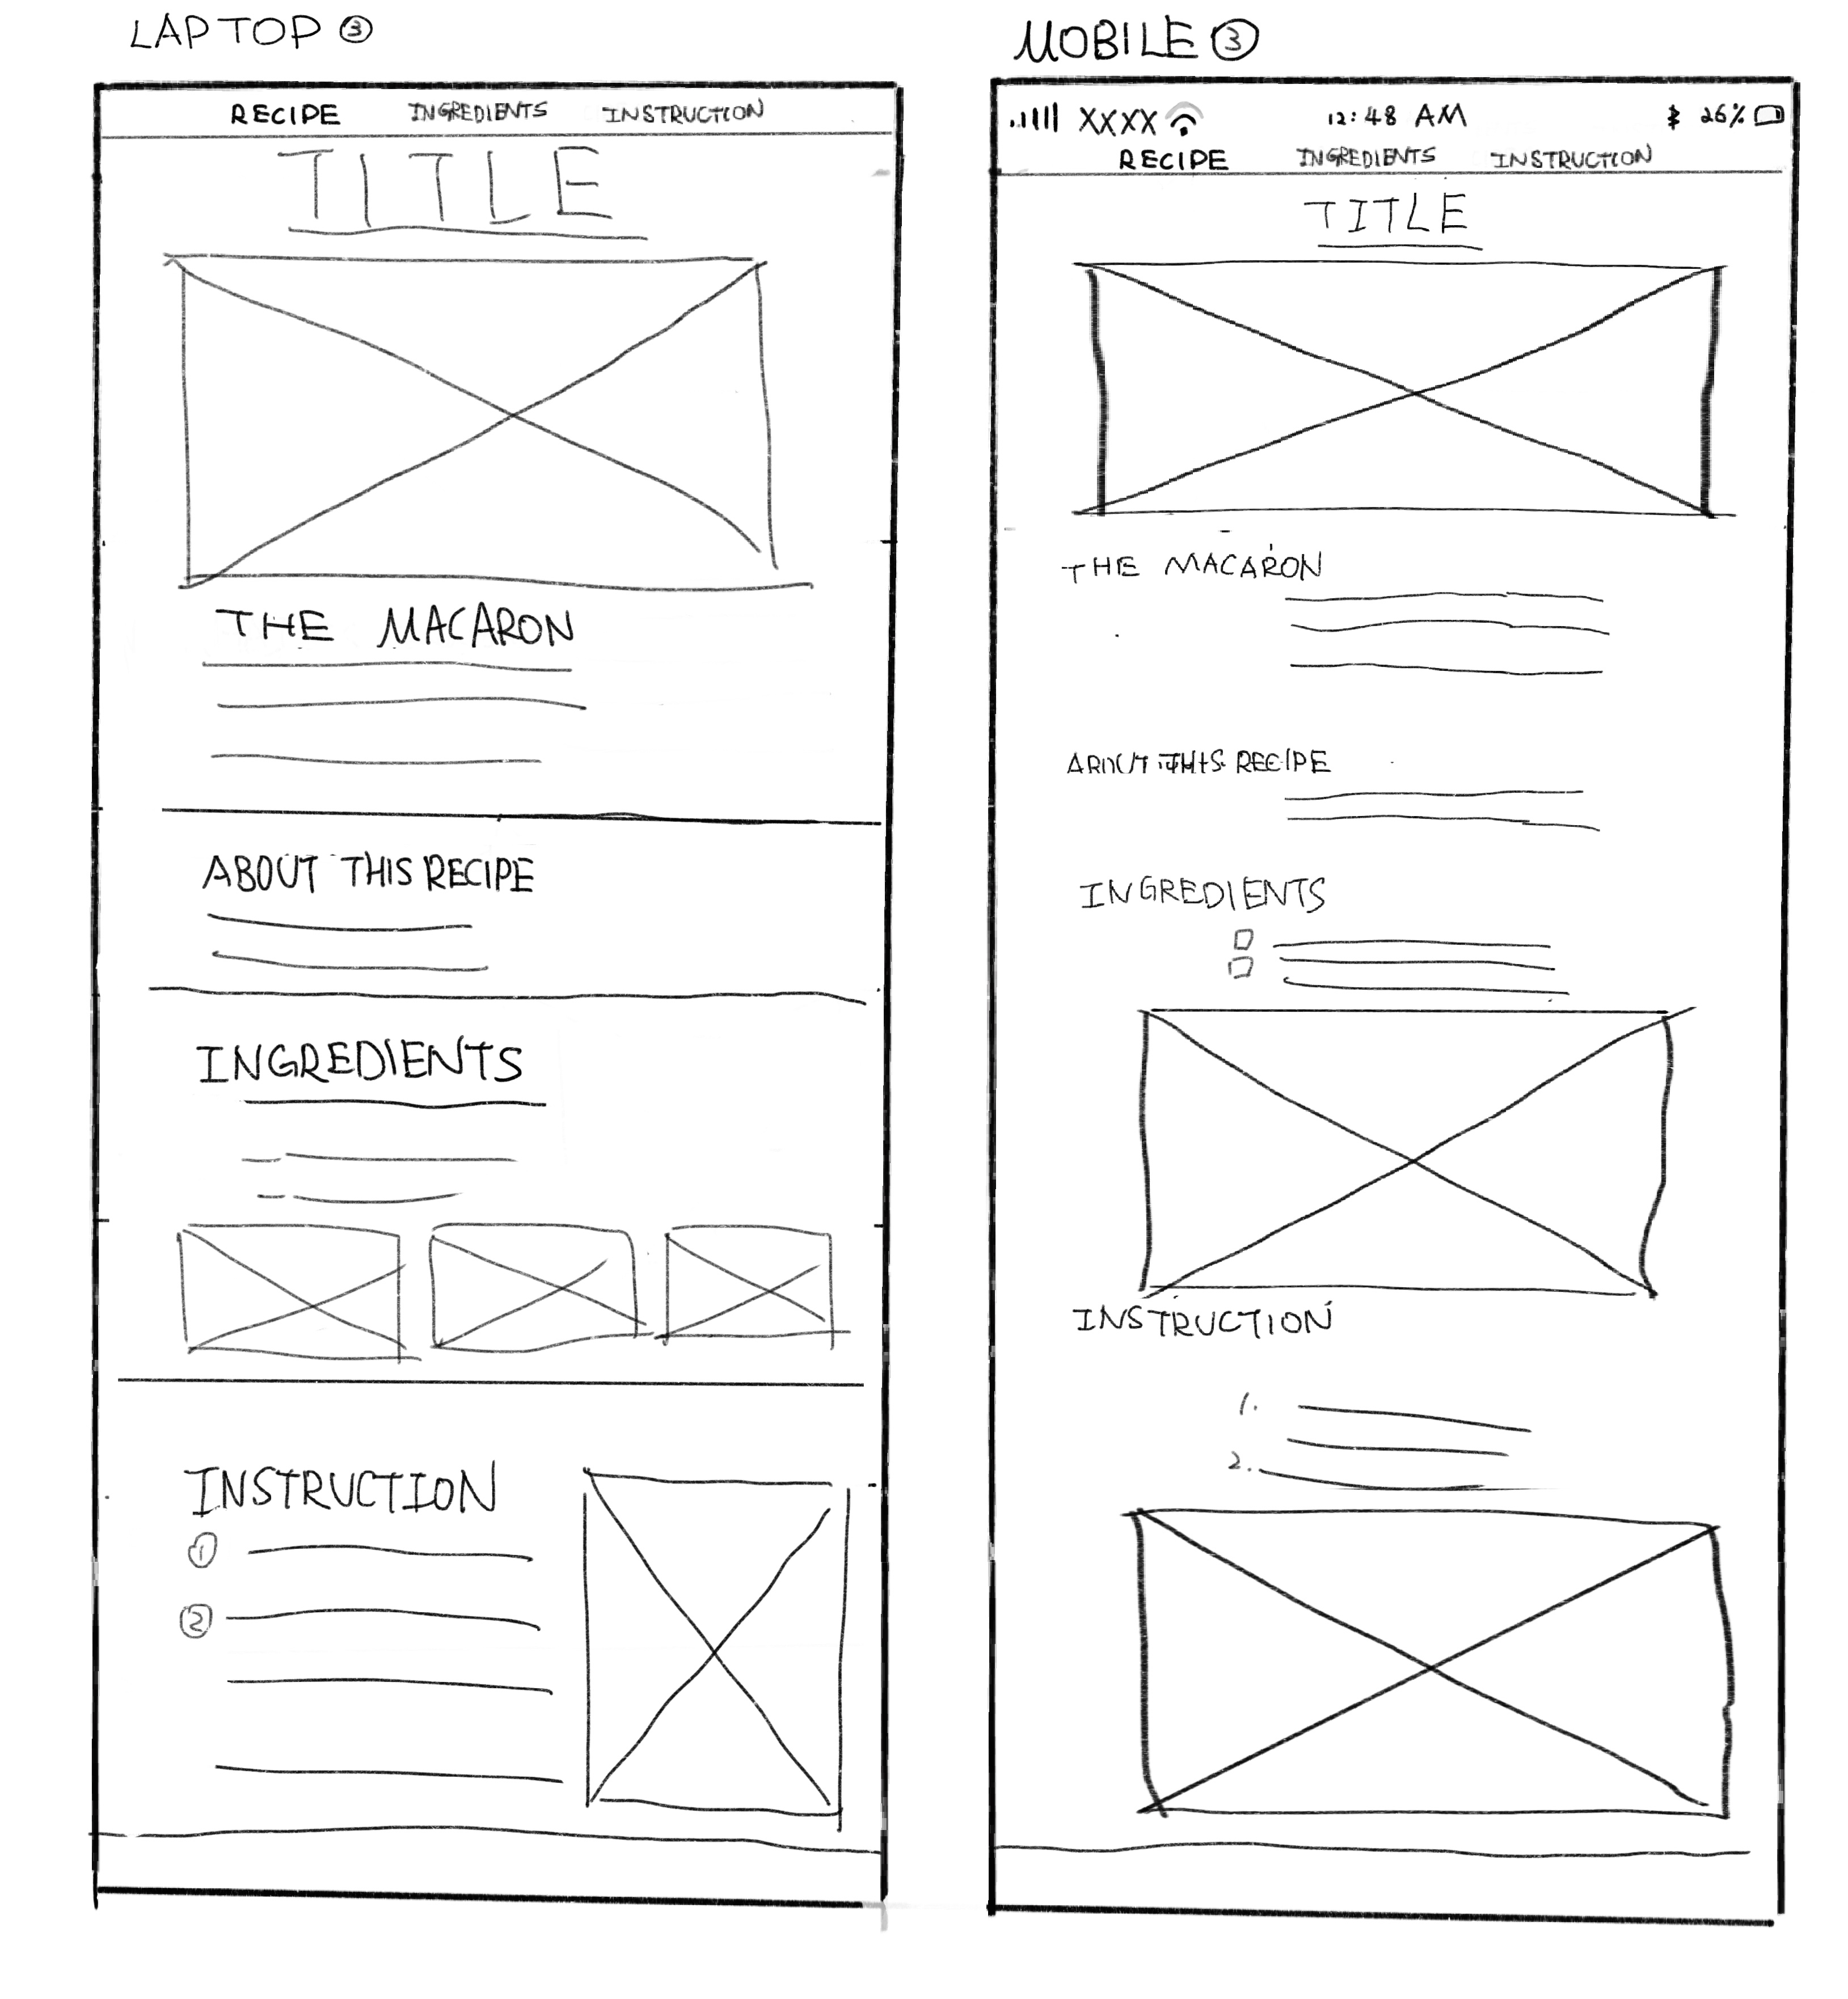 LAPTOP ③
RECIPE INGREDIENTS INSTRUCTION
TITLE
THE MACARON
ABOUT THIS RECIPE
INGREDIENTS
INSTRUCTION
①
②
MOBILE ③
XXXX 12:48 AM 26%
RECIPE INGREDIENTS INSTRUCTION
TITLE
THE MACARON
ABOUT THIS RECIPE
INGREDIENTS
INSTRUCTION
1.
2.